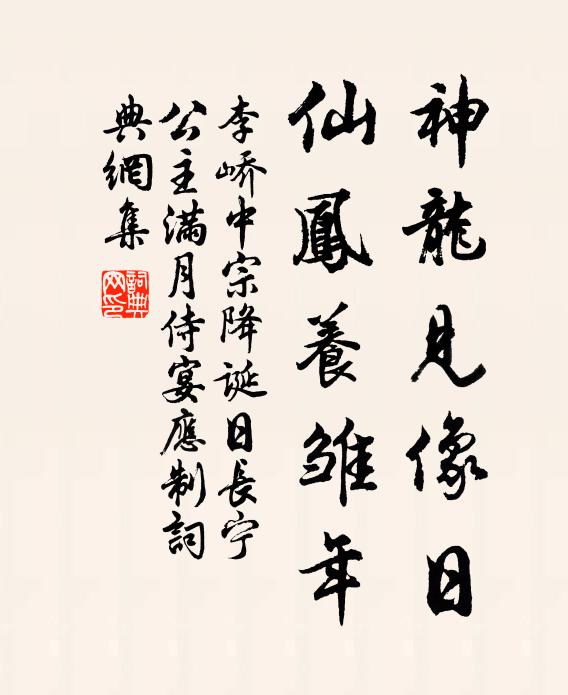 神龍見像日
仙鳳養雛年
李嶠中宗降誕日長宁
公主滿月侍宴應制詞
典網集
詞典網印